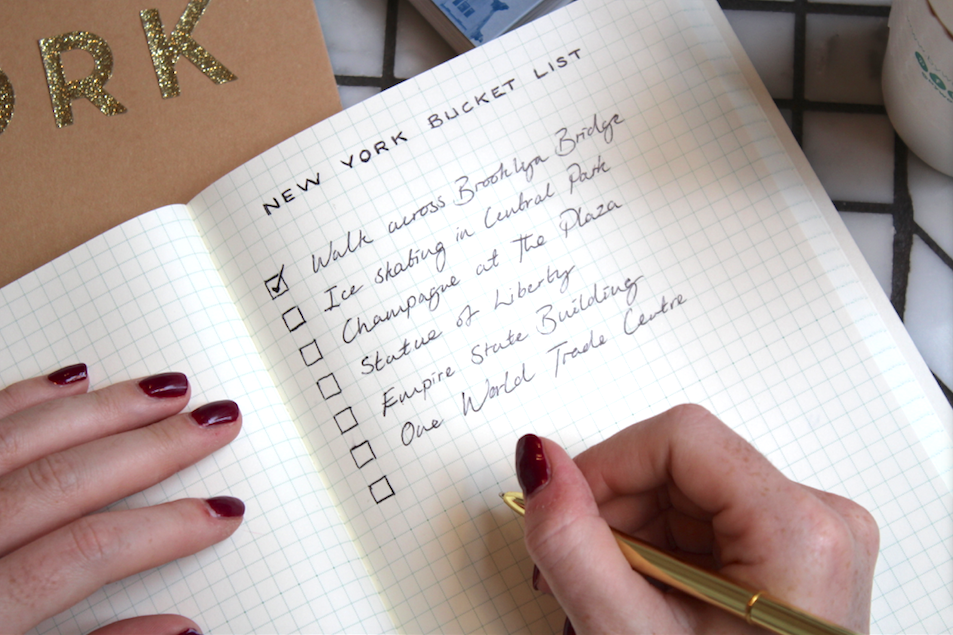 ORK
NEW YORK BUCKET LIST
Walk across Brooklyn Bridge
Ice skating in Central Park
Champagne at The Plaza
Statue of Liberty
Empire State Building
One World Trade Centre